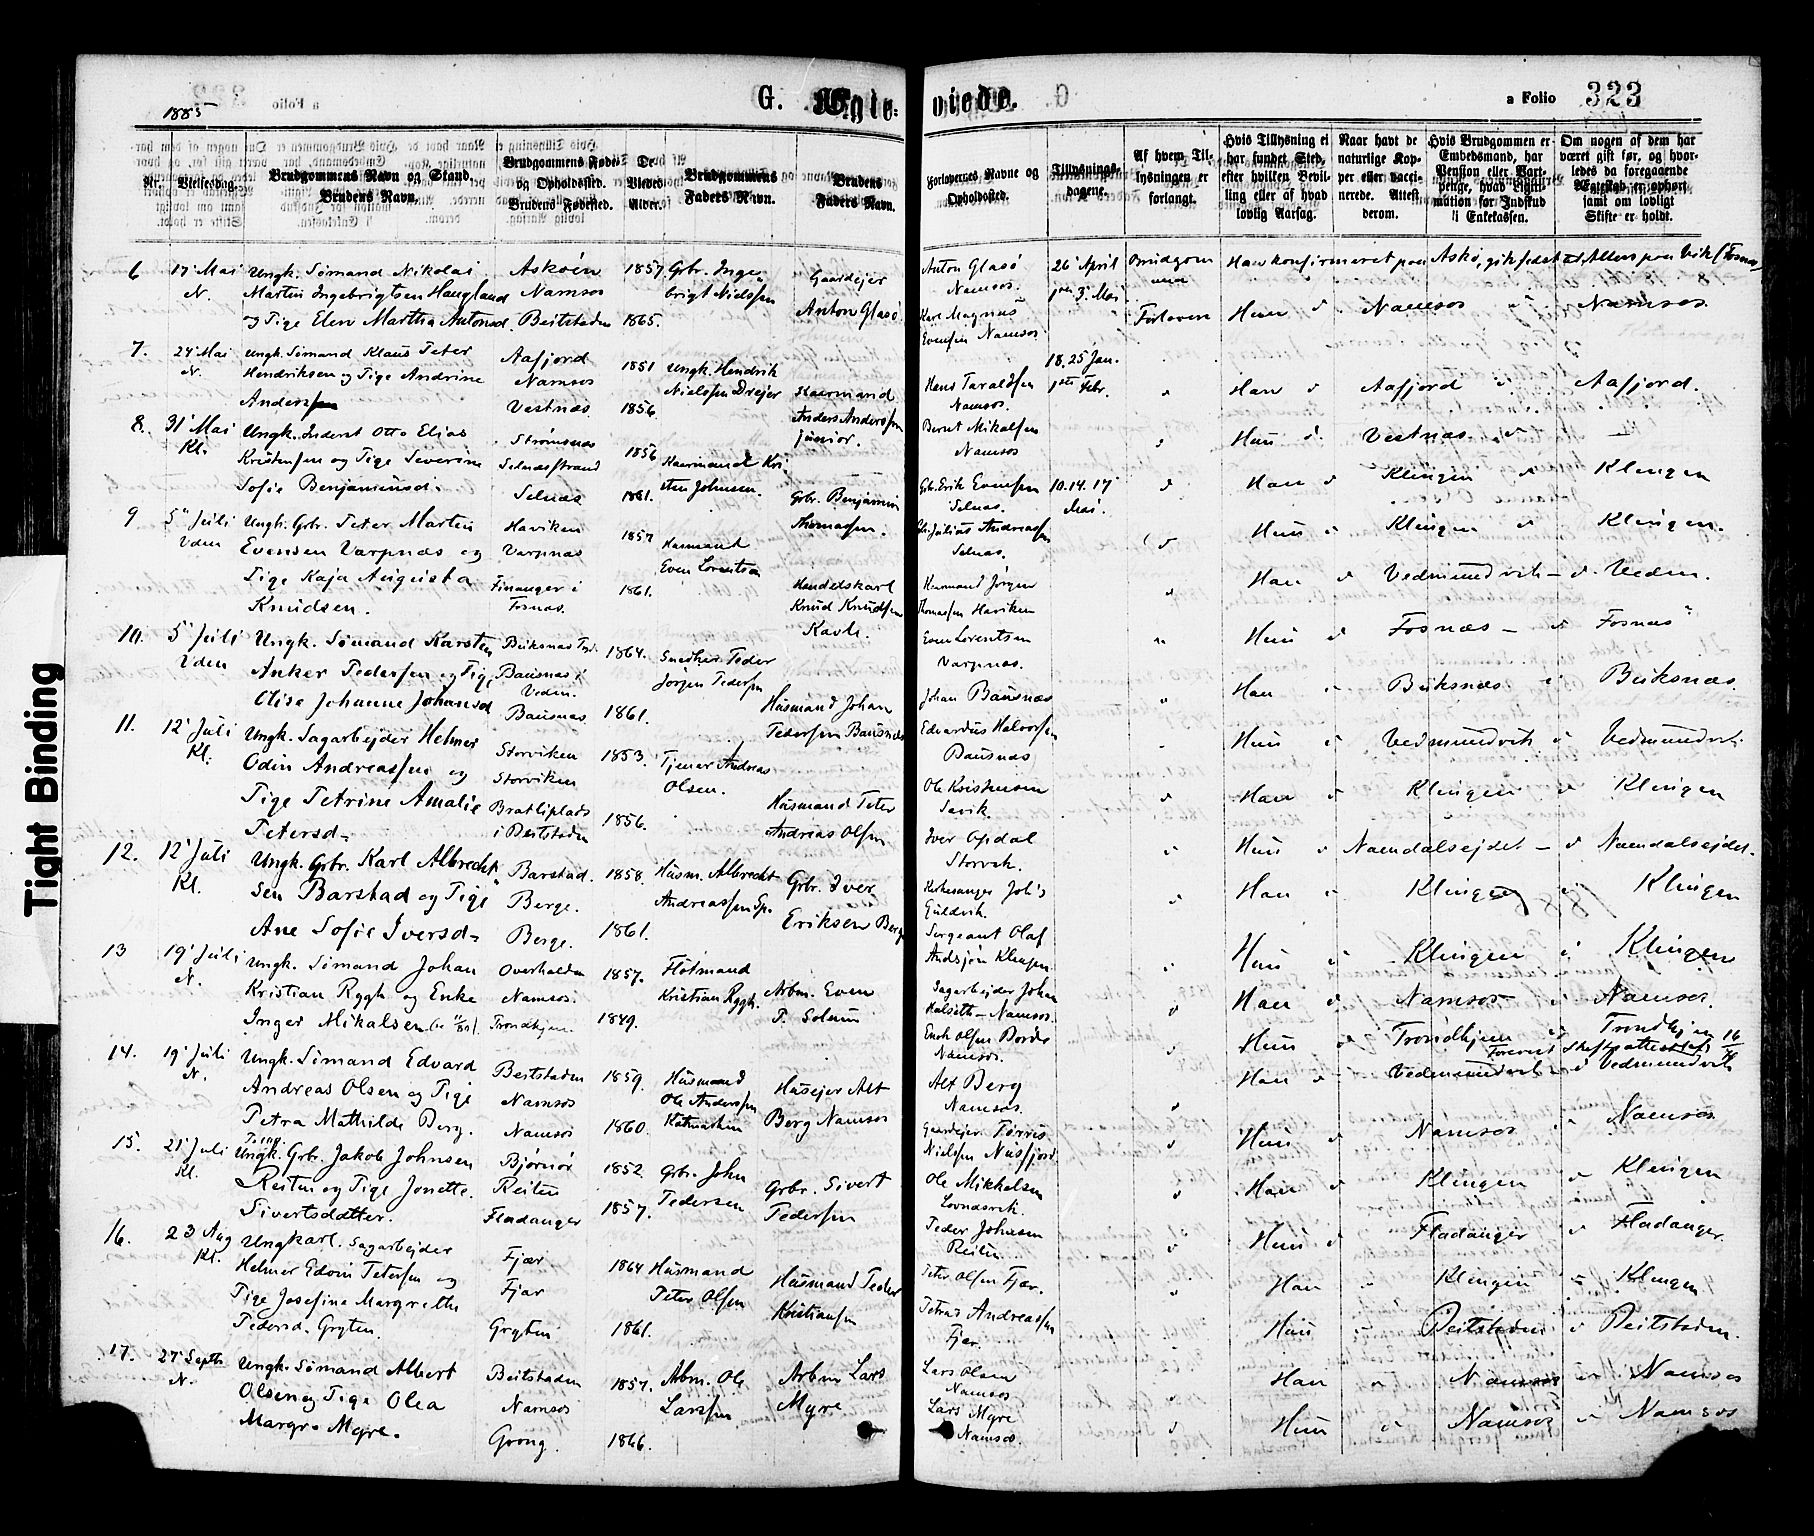 1885
a Folio
G. Ægte-
viede.
a Folio 323
Nr.
Vielsesdag.
Brudgommens Navn og Stand.
Brudens Navn.
Brudgommens Føde-
og Opholdssted.
Brudens Fødested.
De
Viedes
Alder.
Brudgommens
Faders Navn.
Brudens
Faders Navn.
Forlovernes Navne og
Opholdssted.
Tillysnings-
dagene.
Af hvem Til-
lysningen er
forlangt.
Hvis Tillysning ei
har fundet Sted,
efter hvilken Bevil-
ling eller af hvad
lovlig Aarsag.
Naar havt de
naturlige Kop-
per eller vacci-
nerede. Attest
derom.
Hvis Brudgommen er
Embedsmand, har
Pension eller Vart-
penge, hvad Legiti-
mation for Indskud
i Enkekassen.
Om nogen af dem har
været gift før, og hvor-
ledes da foregaaende
Ægteskab er ophørt
samt om lovligt
Skifte er holdt.
6 17' Mai
N.
Ungk. Sømand Nikolai
Martin Ingebrigtsen Haugland
og Pige Elen Martha Antonsd.
Askøen
Namsos
Beitstaden
1857
1865.
Gbr. Inge-
brigt Nielssen
Gaardejer
Anton Glasø
Anton Glasø
Namsos.
Karl Magnus
Evensen Namsos
26' April
3' Mai
Brudgom
Forlovere
Han konfirmeret paa Askø,
Hun Namsos Namsos
7. 24' Mai
N.
Ungk. Sømand Klaus Peter
Hendriksen og Pige Andrine
Anderssen
Aafjord
Namsos
Vestnæs
1851
1856.
Ungk. Hendrik
Nielssen Drejer
Kaarmand
Anders Anderssen
junior.
Hans Taraldsen
Namsos.
Bernt Mikalsen
Namsos
18. 25 Jan.
1ste Febr.
Han Aafjord Aafjord.
Hun Vestnæs
8. 31' Mai
Kl.
Ungk. Inderst Otto Elias
Kristensen og Pige Severine
Sofie Benjaminsd.
Strømsnæs
Selnæsstrand
Selnæs
1856
1861.
Kaarmand Kri-
sten Johnsen.
Gbr. Benjamin
Thomassen.
Gbr. Erik Evensen
Selnæs.
Gbr. Julius Andreassen
Selnæs.
10. 14. 17
Mai.
Han Klingen Klingen
Hun Klingen Klingen.
9 5' Juli
Uden
Ungk. Gbr. Peter Martin
Evensen Varpnæs og
Pige Kaja Augusta
Knudsen.
Haviken
Varpnæs
Finanger i
Fosnæs.
1857
1861.
Husmand
Even Lorentsen
Handelskarl
Knud Knudsen
Kavli.
Husmand Jørgen
Thomassen Haviken
Even Lorentsen
Varpnæs.
Han Vedmundvik Veden.
Hun Fosnæs Fosnæs
10. 5' Juli
Uden
Ungk. Sømand Karsten
Anker Pedersen og Pige
Elise Johanne Johansd
Buksnæs
Bausnæs i
Veden.
Bausnæs.
1864.
1861.
Snedker Peder
Jørgen Pedersen
Husmand Johan
Pedersen Bausnæs
Johan Bausnæs
Edvardus Halvorsen
Bausnæs
Han Buksnæs Buksnæs.
Hun Vedmundvik Vedmundvik
11. 12' Juli
Kl.
Ungk. Sagarbejder Helmer
Odin Andreassen og
Pige Petrine Amalie
Petersd.
Storviken
Storviken
Bratliplads
i Beitstaden
1853.
1856.
Tjener Andreas
Olsen.
Husmand Peter
Andreas Olsen
Ole Kristensen
Sevik.
Iver Opdal
Storvik.
Han Klingen Klingen
Hun Namdalsejdet Namdalsejdet.
12. 12' Juli
Kl.
Ungk. Gbr. Karl Albrecht-
sen Barstad og Pige
Ane Sofie Iversd.
Barstad.
Berge.
Berge.
1858.
1861.
Husm. Albrecht
Andreassen Sp.
Gbr. Iver
Eriksen Berge
Kirkesanger Joh's
Guldvik.
Sergeant Olaf
Andsjøn Klingen
Han Klingen Klingen
Hun Klingen Klingen
13 19' Juli
N.
Ungk. Sømand Johan
Kristian Rygh og Enke
Inger Mikalsen
Overhalden
Namsos.
Trondhjem.
1857.
1849.
Flötmand
Kristian Rygh.
Arbm. Even
P. Solum
Sagarbejder Johan
Halseth Namsos.
Enok Olsen Bordø
Namsos.
Han Namsos Namsos.
Hun Trondhjem Trondhjem
14. 19' Juli
N.
Ungk. Sømand Edvard
Andreas Olsen og Pige
Petra Mathilde Berg.
Beitstaden
Namsos
Namsos
1859.
1860.
Husmand
Ole Anderssen
Husejer Alt
Berg Namsos
Alt Berg
Namsos.
Gaardejer Tørris
Nielssen Nusfjord
Han Vedmundvik Vedmundvik
Hun Namsos Namsos
15. 21' Juli
Kl.
Ungk. Gbr. Jakob Johnsen
Reiten og Pige Jonette
Sivertsdatter.
Bjørnør
Reiten
Fladanger
1852.
1857.
Gbr. John
Pedersen
Gbr. Sivert
Pedersen
Ole Mikkelsen
Lovnæsvik.
Peder Johnsen
Reiten.
Han Klingen Klingen
Hun Fladanger Fladanger
16. 23 Aug
Kl.
Ungkarl. Sagarbejder
Helmer Edvin Petersen og
Pige Josefine Margrethe
Pedersd. Gryten.
Fjær
Fjær
Gryten
1864
1861.
Husmand
Peter Olsen
Husmand Peder
Kristiansen
Peter Olsen Fjær.
Petrus Andreassen
Fjær.
Han Klingen Klingen
Hun Beitstaden Beitstaden.
17. 27' Septb
N.
Ungk. Sømand Albert
Olsen og Pige Olea
Margr. Myre.
Beitstaden
Namsos
Grong.
1857.
1866.
Arbm. Ole
Larssen
Arbm Lars
Myre
Lars Olsen
Namsos
Lars Myre
Namsos.
Han Namsos Namsos
Hun Namsos Namsos
Tight Binding